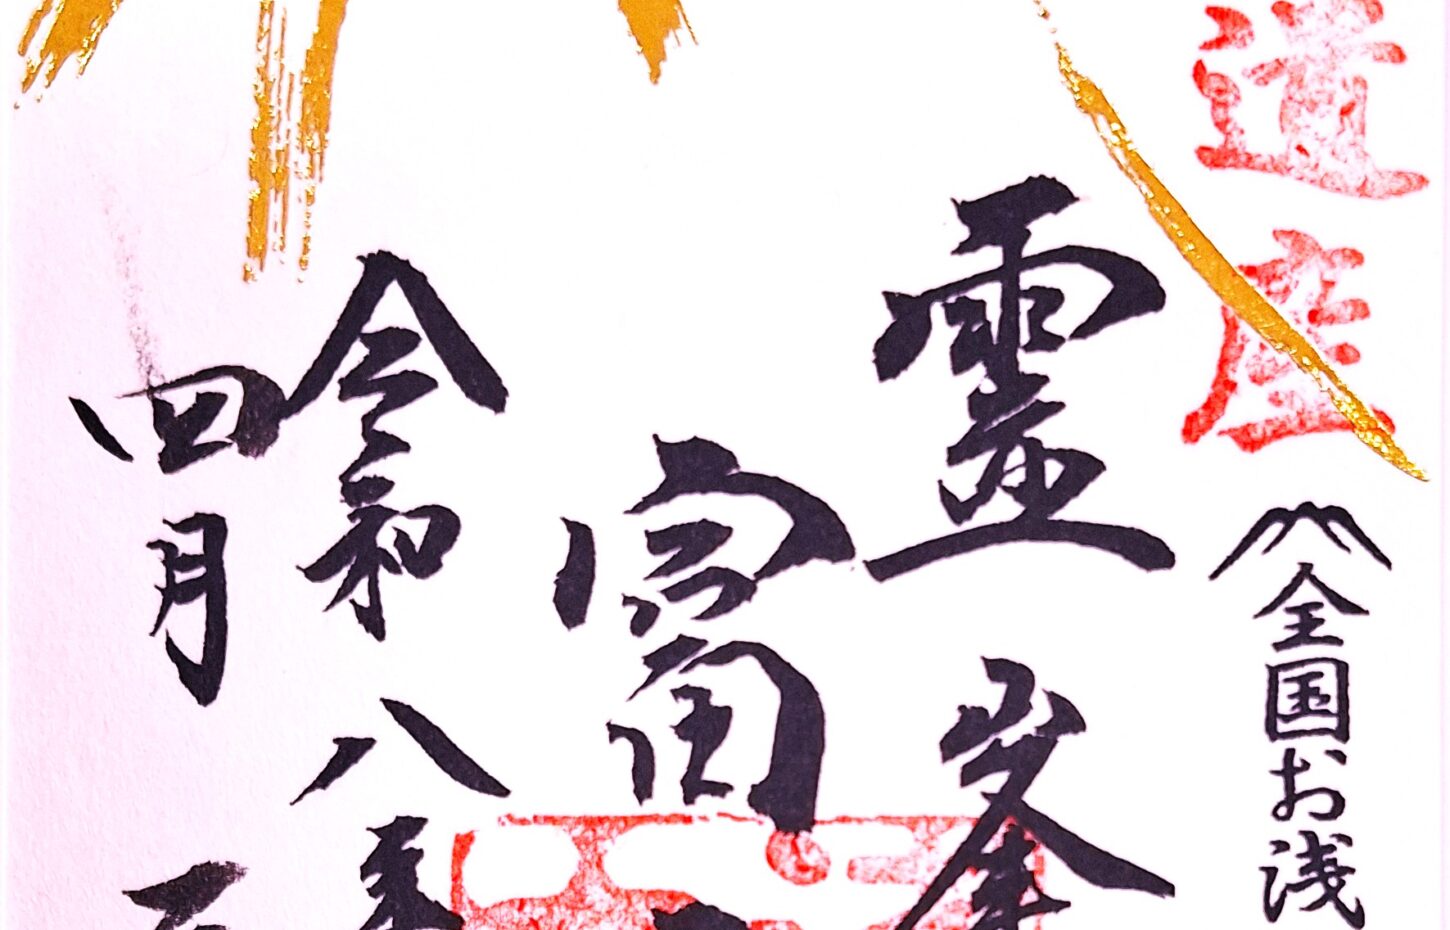 遺産
全国お浅
霊峯
富
令和八年
四月